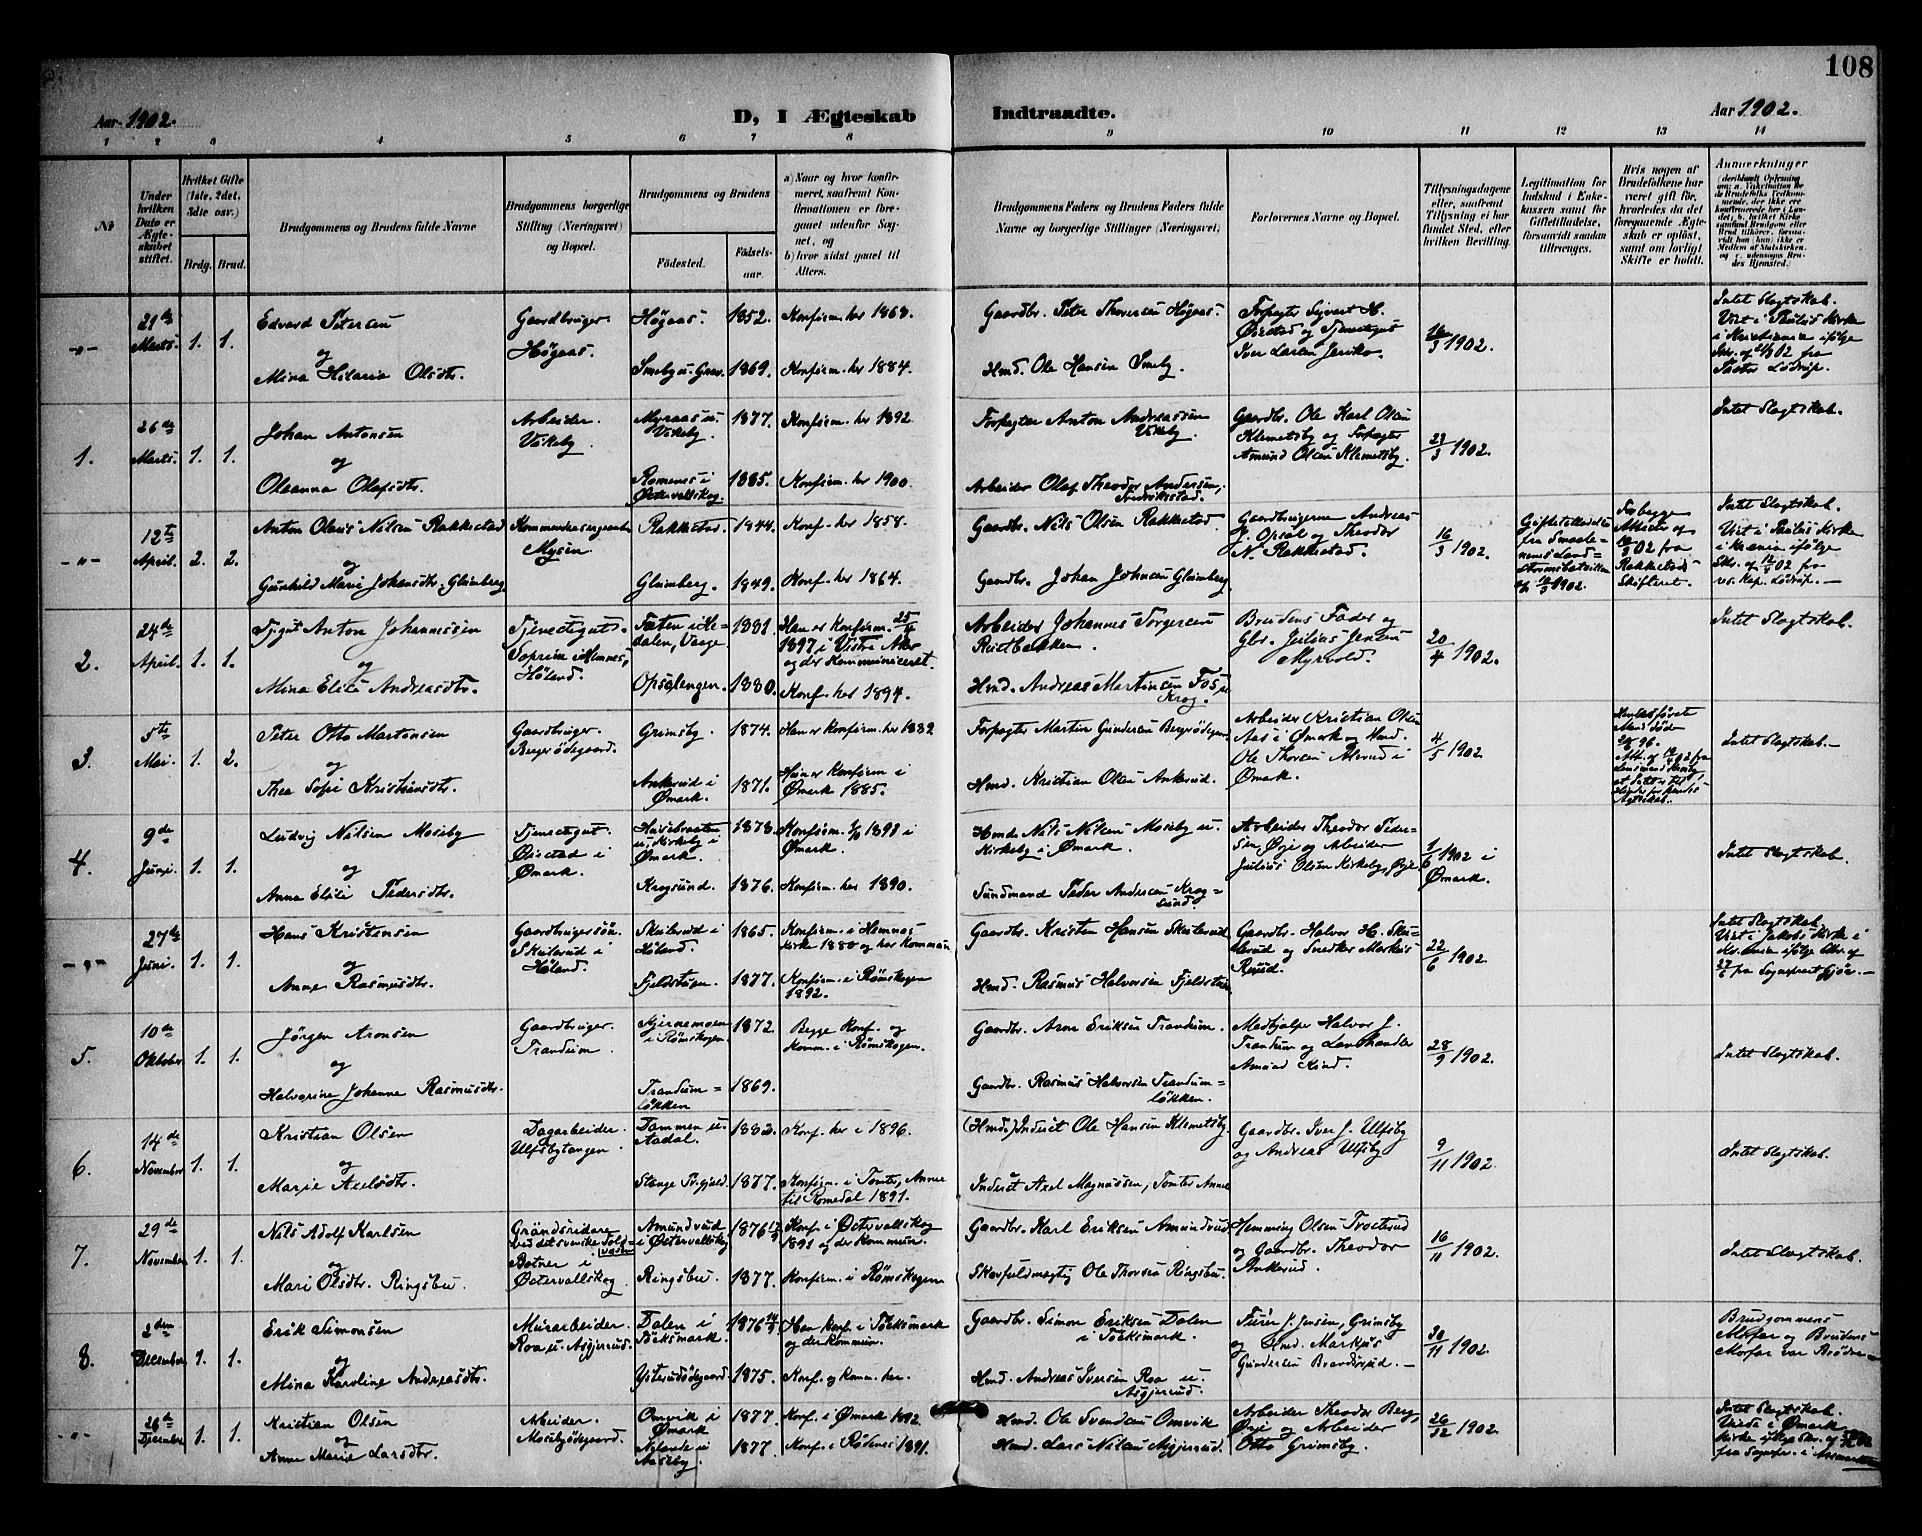 108
Aar 1902.
D, I Ægteskab
Indtraadte.
Aar 1902.
1 2 3 4 5 6 7 8 9 10 11 12 13 14
No
Under hvilken Dato er Ægteskabet stiftet.
Hvilket Gifte (1ste, 2det, 3die osv.)
Brdg. Brud.
Brudgommens og Brudens fulde Navne
Brudgommens borgerlige Stilling (Næringsvei) og Bopæl.
Brudgommens og Brudens
Fødested.
Fødselsaar.
a) Naar og hvor konfirmeret, saafremt Konfirmationen er foregaaet udenfor Sognet, og
b) hvor sidst gaaet til Alters.
Brudgommens Faders og Brudens Faders fulde Navne og borgerlige Stillinger (Næringsvei)
Forlovernes Navne og Bopæl.
Tillysningsdagene eller, saafremt Tillysning ei har fundet Sted, efter hvilken Bevilling.
Legitimation for Indskud i Enkekassen samt for Giftetilladelse, forsaavidt saadan tiltrænges.
Hvis nogen af Brudefolkene har været gift før, hvorledes da det foregaaende Ægteskab er opløst, samt om lovligt Skifte er holdt.
Anmerkninger
-"-
21de Marts.
1. 1.
Edvard Petersen
og
Mina Hilaria Olsdtr.
Gaardbruger Høgaas.
Høgaas. 1852. Konfirm. her 1868.
Smeby u. Grav. 1869. Konfirm. her 1884.
Gaardbr. Peter Thoresen Høgaas.
Hmd. Ole Hansen Smeby.
Forpagter Syvert H. Ørestad og Tjenestegut Iver Larsen Jeriko.
16/3 1902.
Intet Slagtskab.
Viet i Paulus Kirke i Kristiania ifølge Skr. af 21/3 02 fra Pastor Lødrup.
1.
26de Marts.
1. 1.
Johan Antonsen
og
Oleanna Olafsdtr.
Arbeider. Vikeby.
Myraas u. Vikeby. 1877. Konfirm. her 1892.
Romenes i Østervallskog. 1885. Konfirm. her 1900.
Forpagter Anton Andreassen Vikeby.
Arbeider Olaf Theodor Andersen, Fredrikstad.
Gaardbr. Ole Karl Olsen Klemetsby og Forpagter Amund Olsen Klemetsby.
23/3 1902.
Intet Slagtskab.
-"-
12te April.
2. 2.
Anton Olaus Nilsen Rakkestad
og
Gunhild Marie Johansdtr. Glimberg
Mysen
Rakkestad. 1844. Konf. her 1858.
Glimberg. 1849. Konf. her 1864.
Gaardbr. Nils Olsen Rakkestad
Gaardbr. Johan Johnsen Glimberg
Gaardbrugerne Andreas J. Opsal og Theodor N. Rakkestad.
16/3 1902.
Giftetilladelse fra Smaalenenes Landværnsbataillon af 14/3 1902.
For begge Attester af 12/3 02 fra Rakkestad Skifteret.
Intet Slagtskab.
Viet i Paulus Kirke i Krania ifølge Skr. af 12/4 02 fra res. Kap. Lødrup.
2.
24de April.
1. 1.
Tjgut Anton Johannesen
og
Mina Elise Andreasdtr.
Tjenestegut. Soprim i Hemnes, Høland.
1881. Han er Konfirm. 25/4 1897 i Vestre Aker og der Kommuniceret.
Opsalengen. 1880. Konf. her 1894.
Arbeider Johannes Torgersen Rustbakken.
Hmd. Andreas Martinsen Fos, u. Krog.
Brudens Fader og Gbr. Julius Jensen Myrvold.
20/4 1902.
Intet Slagtskab.
3.
5te Mai.
1. 2.
Peter Otto Martinsen
og
Thea Sofie Kristiansdtr.
Gaardbruger Bergerødegaard.
Grimsby. 1874. Han er Konfirm. her 1889
Ankerud i Ømark. 1871. Hun er Konfirm i Ømark 1885.
Forpagter Martin Gundersen Bergerødegaard
Hmd. Kristian Olsen Ankerud.
Arbeider Kristian Olsen Aas i Ømark og Hmd. Ole Thoresen Alerud i Ømark.
4/5 1902
Intet Slagtskab.
4.
9de Juni.
1. 1.
Ludvig Nilsen Moseby
og
Anna Elise Pedersdtr.
Tjenestegut. Ørestad i Ømark.
Havebraaten u. Kirkeby i Ømark. 1878. Konfirm. 1/10 1892 i Ømark.
Krogsund. 1876. Konfirm. her 1890.
Hmd. Nils Nilsen Moseby u. Kirkeby i Ømark.
Sundmand Peder Andersen Krogsund.
Arbeider Theodor Pedersen, Ørje og Arbeider Julius Olsen Kirkeby, Ørje.
1/6 1902 i Ømark.
Intet Slagtskab.
-"-
27de Juni.
1. 1.
Hans Kristensen
og
Anne Rasmusdtr.
Gaardbrugersøn. Skulerud i Høland.
Skulerud i Høland. 1865. Konfirm. i Hemnæs Kirke 1880 og her Kommun.
Fjeldstuen. 1877. Konfirm. i Rømskogen 1892.
Gaardbr. Kristen Hansen Skulerud
Hmd. Rasmus Halvorsen Fjeldstuen
Gaardbr. Halvor H. Skulerud og Snedker Markus Ruud.
22/6 1902
Intet Slagtskab.
Viet i Jakobs Kirke i Krania ifølge Skr. af 27/6 fra Sognepræst Gjør.
5.
10de Oktober
1. 1.
Jørgen Aronsen
og
Halvorine Johanne Rasmusdtr.
Gaardbruger Trandum.
Tjernemoen i Rømskogen. 1872. Begge Konf. og Komm. i Rømskogen.
Trandumløkken 1869.
Gaardbr. Aron Eriksen Trandum.
Gaardbr. Rasmus Halvorsen Trandumløkken.
Medhjælper Halvor J. Trandum og Landhandler Amund Kind.
28/9 1902.
Intet Slagtskab.
6.
14de November
1. 1.
Kristian Olsen
og
Marie Axelsdtr.
Dagarbeider. Ulfsbytangen
Dammen u. Aadal. 1882. Konf. her i 1896.
Stange Prgjeld. 1877. Konfirm. i Tomter, Annex til Romedal 1891.
(Hmd.) Inderst Ole Hansen Klemetsby.
Inderst Axel Magnussen, Tomter Annex
Gaardbr. Iver J. Ulfsby og Andreas Ulfsby
9/11 1902.
Intet Slagtskab.
7.
29de November
1. 1.
Nils Adolf Karlsen
og
Mari Olsdtr. Ringsbu.
Grændsridare ved det svenske Toldvæsen Botner i Østervallskog
Amundrud i Østervallskog 1876 17/9 Konf. i Østervallskog 1891 og der Kommun.
Ringsbu. 1877. Konfirm. i Rømskogen
Gaardbr. Karl Eriksen Amundrud
Skovfuldmægtig Ole Thorsen Ringsbu.
Hemming Olsen Trosterud og Gaardbr. Theodor Ankerud.
16/11 1902.
Intet Slagtskab.
8.
2den December
1. 1.
Erik Simonsen
og
Mina Karoline Andreasdtr.
Murarbeider. Roa u. Asgjerrud.
Dalen i Töcksmark. 1876 Han konf. i Töcksmark og der Kommun.
Ysterudødegaard. 1875. Konf. og Komm. her.
Gaardbr. Simon Eriksen Dalen i Töcksmark.
Hmd. Andreas Iversen Roa u. Asgjerrud.
J. Jensen, Grimsby og Hmd. Markus Gundersen Brandsrud.
30/11 1902.
Brudgommens Morfar og Brudens Morfar var Brødre
-"-
26de December
1. 1.
Kristian Olsen
og
Anne Marie Larsdtr.
Arbeider. Mosebyødegaard.
Omvik i Ømark 1877. Konf. i Ømark 1892.
Aaseby. 1877. Konf. i Rødenes 1891.
Hmd. Ole Svendsen Omvik
Hmd. Lars Nilsen Asgjerrud.
Arbeider Theodor Berg, Ørje og Arbeider Otto Grimsby.
26/12 1902.
Intet Slagtskab.
Viede i Ømark Kirke ifølge Skr. af